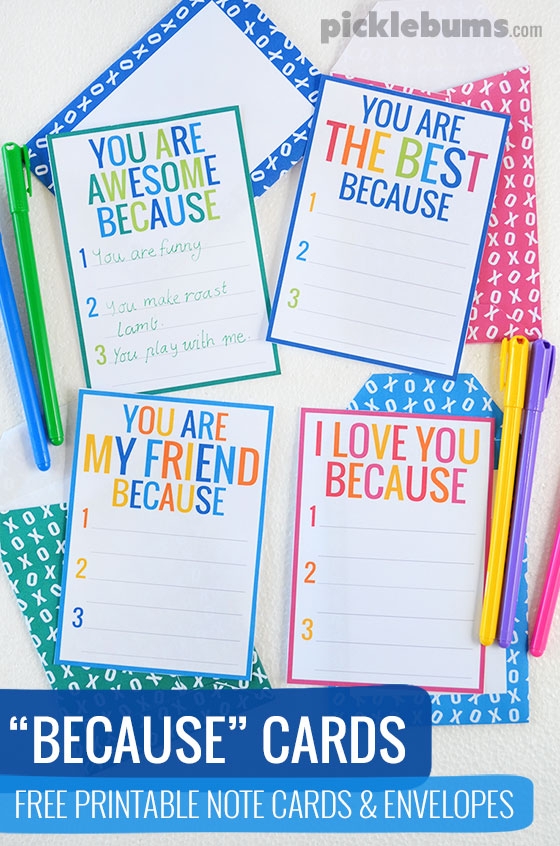 picklebums.com
YOU ARE
AWESOME
BECAUSE
1 You are funny
2 You make roast
lamb.
3 You play with me.
YOU ARE
THE BEST
BECAUSE
1
2
3
YOU ARE
MY FRIEND
BECAUSE
1
2
3
I LOVE YOU
BECAUSE
1
2
3
“BECAUSE” CARDS
FREE PRINTABLE NOTE CARDS & ENVELOPES